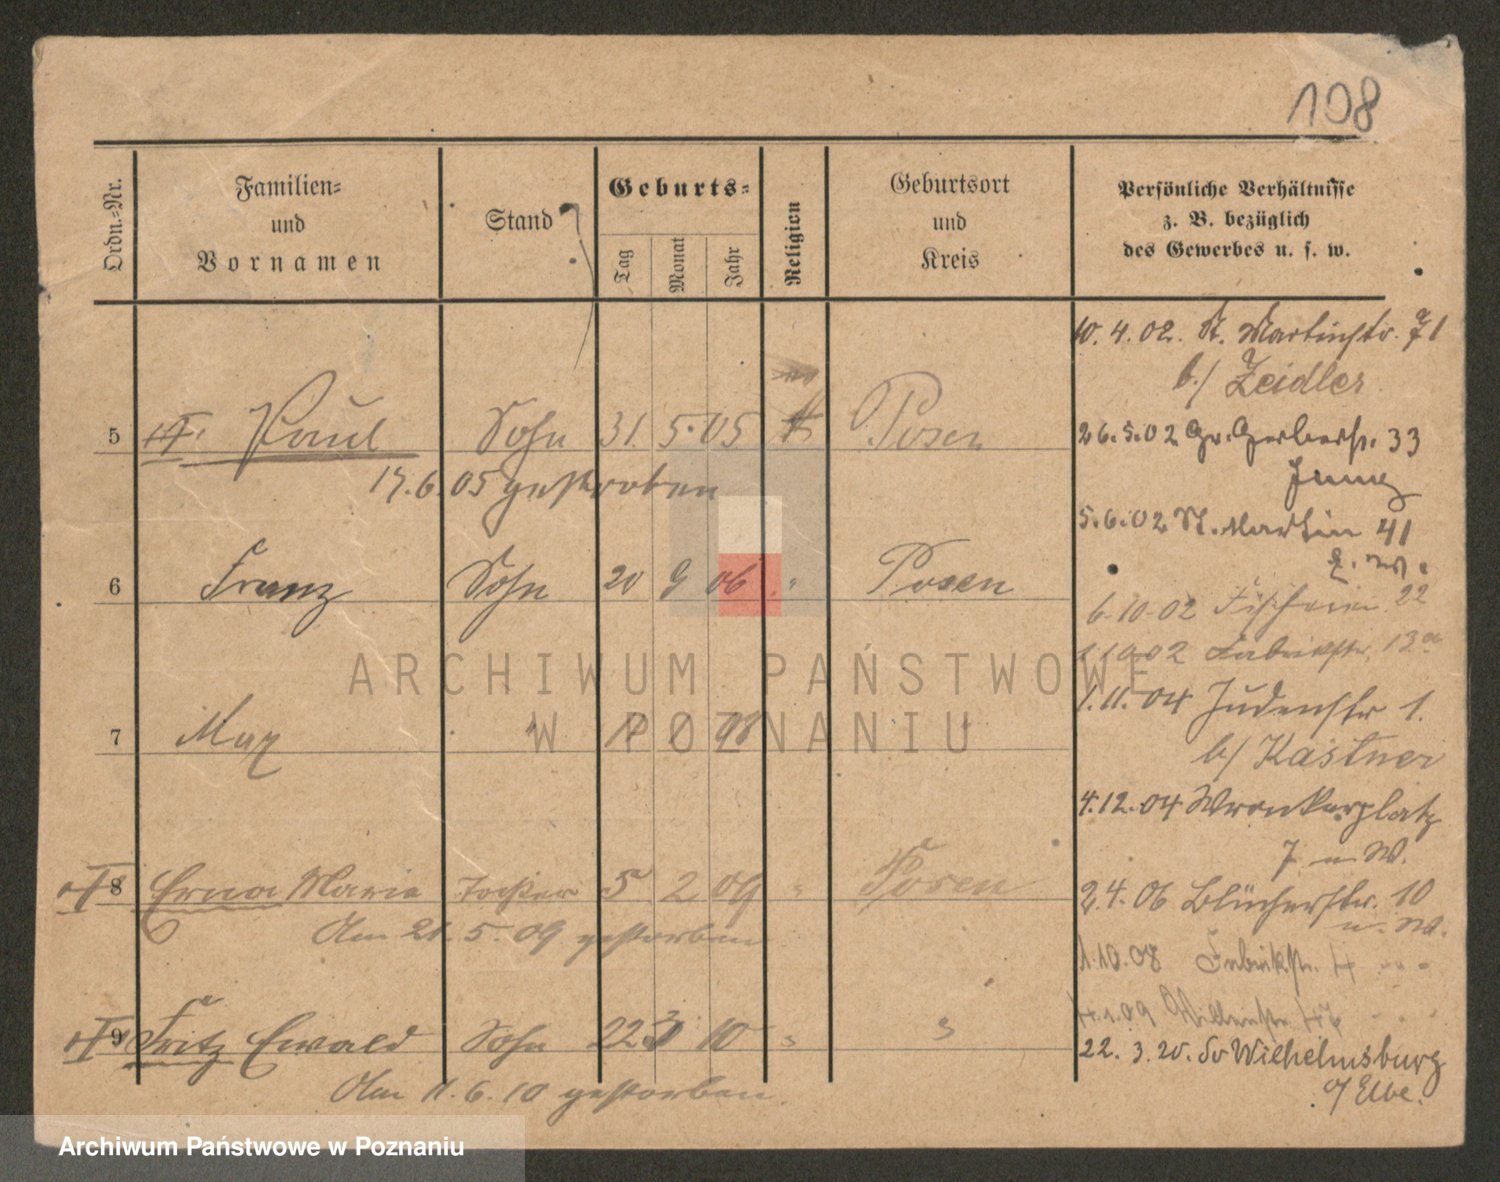 108
Ordn.-Nr.
Familien-
und
Vornamen
Stand
Geburts-
Tag
Monat
Jahr
Religion
Geburtsort
und
Kreis
Persönliche Verhältnisse
z. B. bezüglich
des Gewerbes u. s. w.
5 Paul Sohn 31. 5. 05 Posen
17. 6. 05 gestorben
6 Franz Sohn 20 9 06 " Posen
7 Max " 11 1 08 "
8 Erna Marie Tochter 5 2 09 " Posen
Am 21. 5. 09 gestorben
9 Fritz Ewald Sohn 22 10 "
Am 11. 6. 10 gestorben.
10. 4. 02. St. Martinstr. 71
b./ Zeidler
26. 5. 02 Gr. Gerberstr. 33
5. 6. 02 St. Martin 41
6. 10. 02 Fischerei 22
1.10.02 Fabrikstr. 13a
1. 11. 04 Judenstr 1.
b/ Kastner
4. 12. 04 Wronkerplatz
7 u. W.
2. 4. 06 Blücherstr. 10
u. W.
1.10.08 Fabrikstr. 4
4.1.09
22. 3. 20. Wilhelmsburg
a/ Elbe.
ARCHIWUM PAŃSTWOWE
W POZNANIU
Archiwum Państwowe w Poznaniu